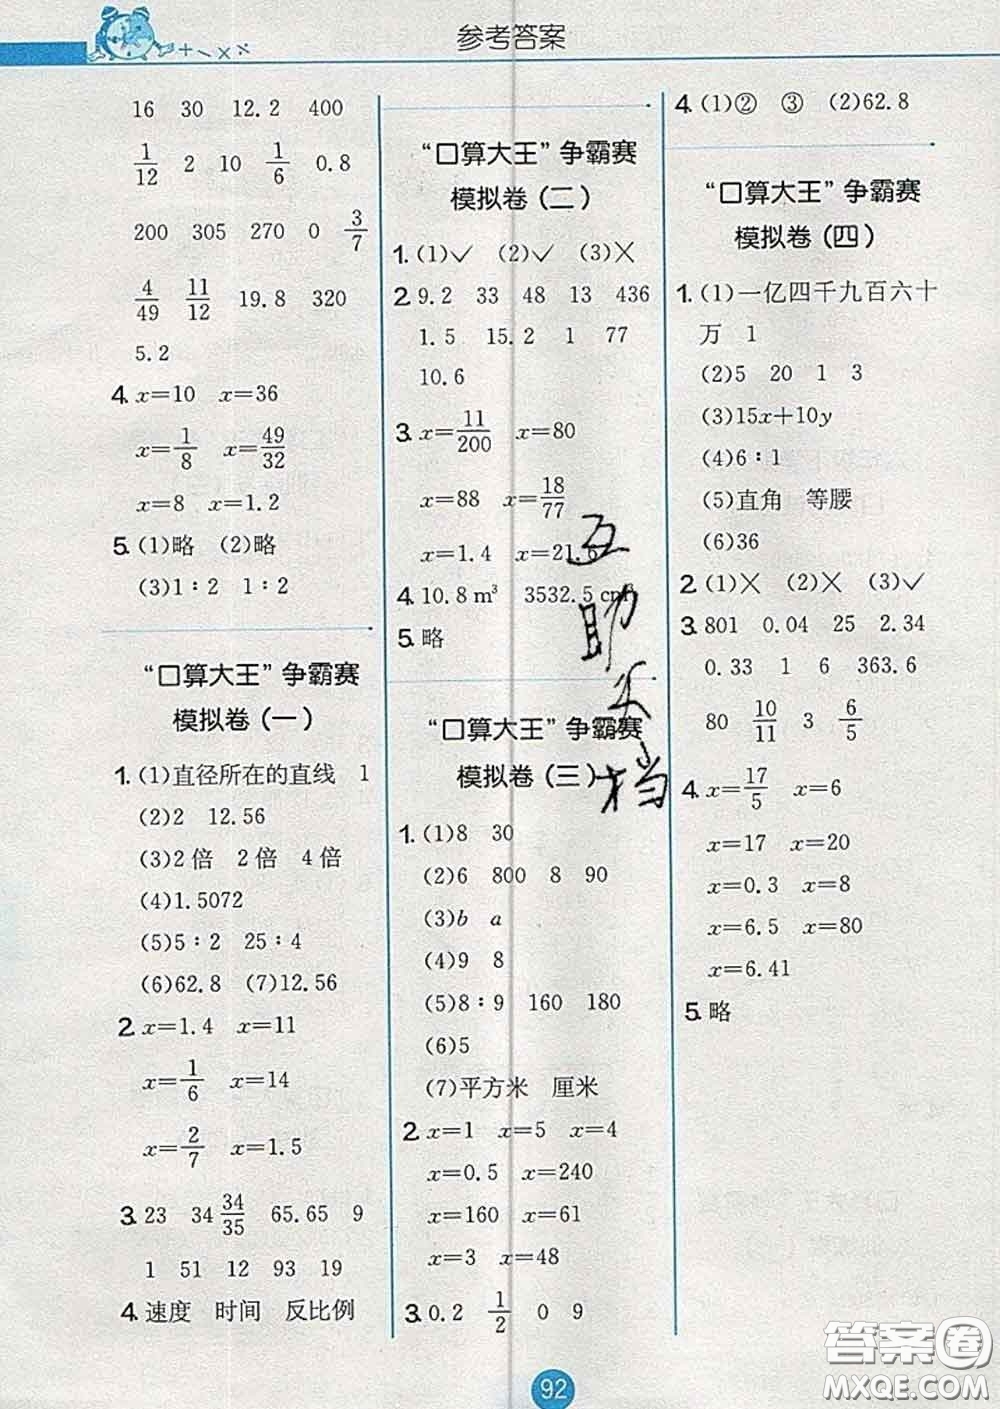 参考答案
16 30 12.2 400
1/12 2 10 1/6 0.8
200 305 270 0 3/7
4/49 11/12 19.8 320
5.2
4. x=10 x=36
x=1/8 x=49/32
x=8 x=1.2
5. (1)略 (2)略
(3)1∶2 1∶2
“口算大王”争霸赛
模拟卷(一)
1. (1)直径所在的直线 1
(2)2 12.56
(3)2倍 2倍 4倍
(4)1.5072
(5)5∶2 25∶4
(6)62.8 (7)12.56
2. x=1.4 x=11
x=1/6 x=14
x=2/7 x=1.5
3. 23 34 34/35 65.65 9
1 51 12 93 19
4. 速度 时间 反比例
“口算大王”争霸赛
模拟卷(二)
1. (1)✓ (2)✓ (3)╳
2. 9.2 33 48 13 436
1.5 15.2 1 77
10.6
3. x=11/200 x=80
x=88 x=18/77
x=1.4 x=21.6
4. 10.8 m³ 3532.5 cm³
5. 略
“口算大王”争霸赛
模拟卷(三)
1. (1)8 30
(2)6 800 8 90
(3)b a
(4)9 8
(5)8∶9 160 180
(6)5
(7)平方米 厘米
2. x=1 x=5 x=4
x=0.5 x=240
x=160 x=61
x=3 x=48
3. 0.2 1/2 0 9
4. (1)② ③ (2)62.8
“口算大王”争霸赛
模拟卷(四)
1. (1)一亿四千九百六十
万 1
(2)5 20 1 3
(3)15x+10y
(4)6∶1
(5)直角 等腰
(6)36
2. (1)╳ (2)╳ (3)✓
3. 801 0.04 25 2.34
0.33 1 6 363.6
80 10/11 3 6/5
4. x=17/5 x=6
x=17 x=20
x=0.3 x=8
x=6.5 x=80
x=6.41
5. 略
92
答案圈
MXQE.COM